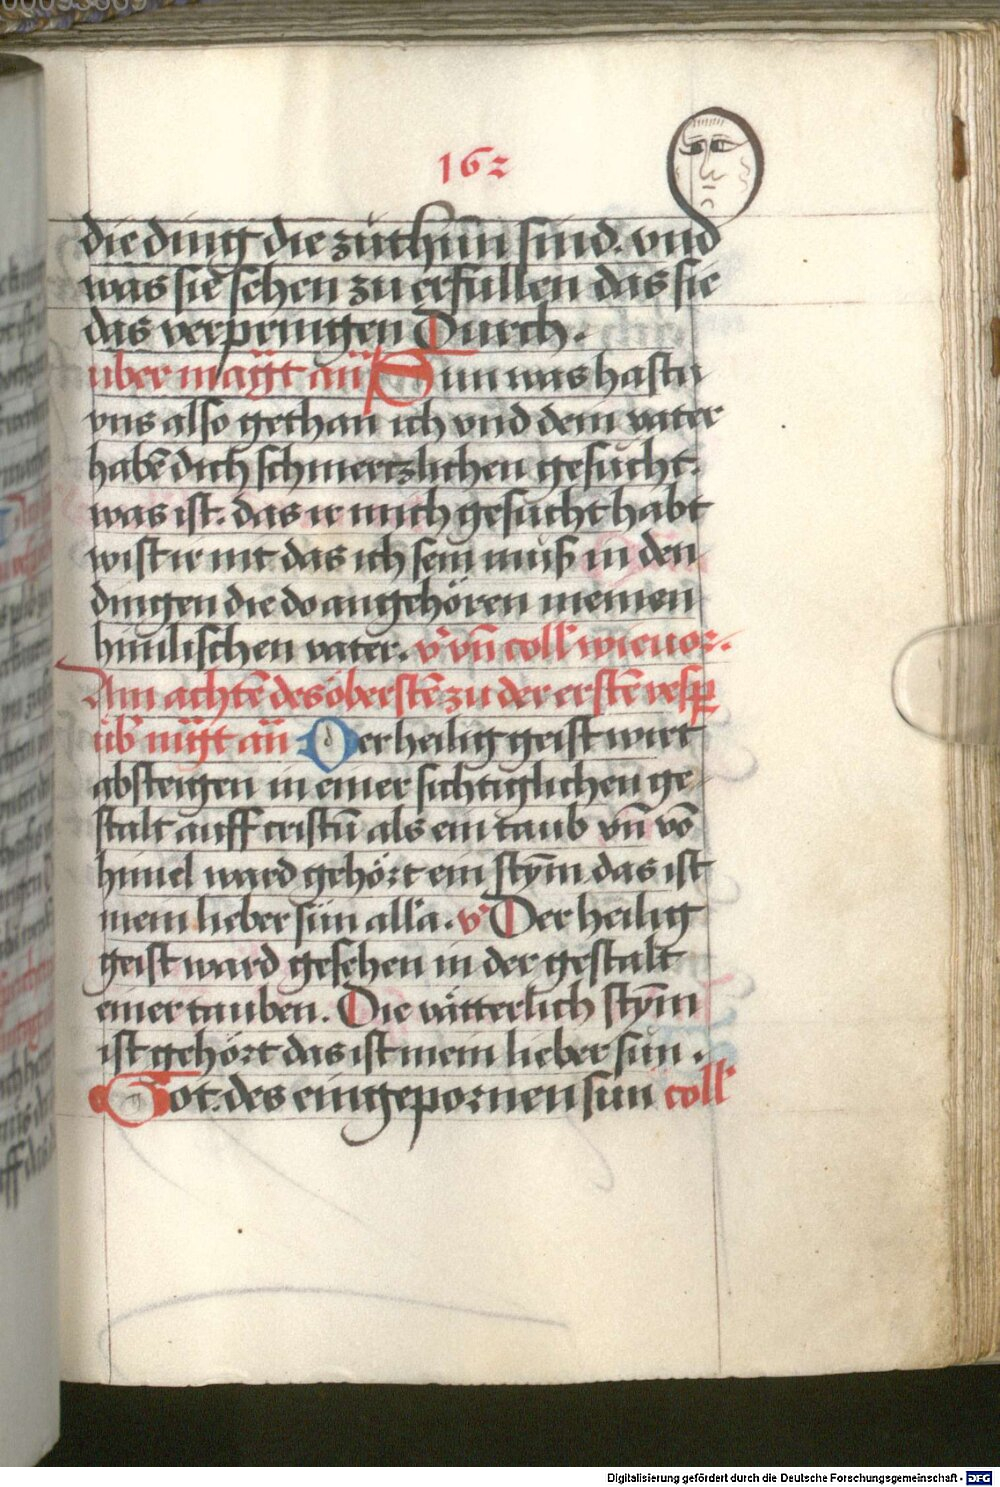 162
die ding die zůthůn sind. vnd
was sie sehen zu erfullen das sie
das verpringen Durch.
über mag̈t an̄ Sun was hastu
vns also gethan ich vnd dein vater
habē dich schmertzlichen gesucht.
was ist. das ir mich gesucht habt
wist ir nit das ich sein muß in den
dingen die do angehören meinen
himlischen vater. vͬ vn̄ coll wie uor.
Am achtē des öberstē zu der erstē vesper
üb mg̈t an̄ Der heilig geist wirt
absteigen in einer sichtiglichen ge
stalt auff cristū als ein taub vn̄ vō
himel ward gehört ein stym̄ das ist
mein lieber sün all'a. vͬ Der heilig
geist ward gesehen in der gestalt
einer tauben. Die vätterlich stym̄
ist gehört das ist mein lieber sün.
Got. des eingepornen sun coll'
Digitalisierung gefördert durch die Deutsche Forschungsgemeinschaft - DFG